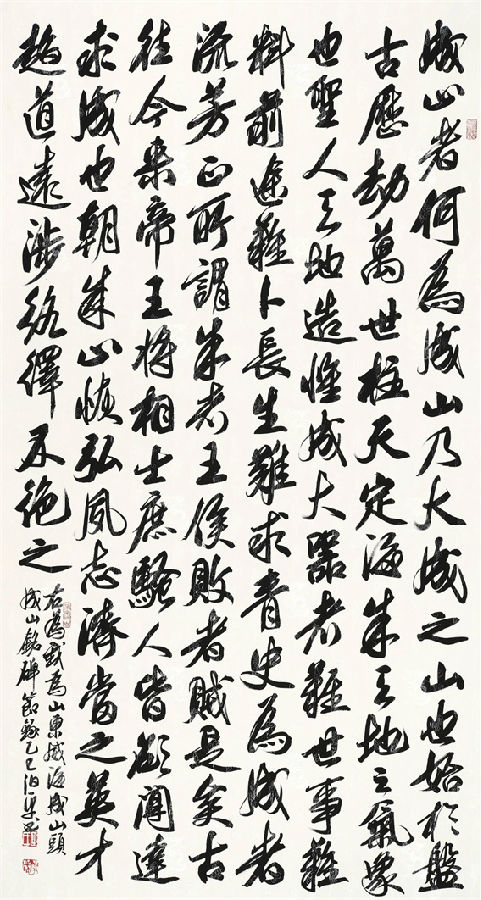 成山者何為成山乃大成之山也始於盤
古歷劫萬世柱天定海成天地之氣象
也聖人天地造惟成大器者難世事難
料前途難卜長生難求青史為成者
流芳正所謂成者王侯敗者賊是矣古
往今來帝王將相士庶騷人皆欲聞達
求成也朝成山 弘風志濟當之英才
趨道遠涉絡繹不絕之
右為我為山東威海成山頭
成山銘碑節錄乙巳